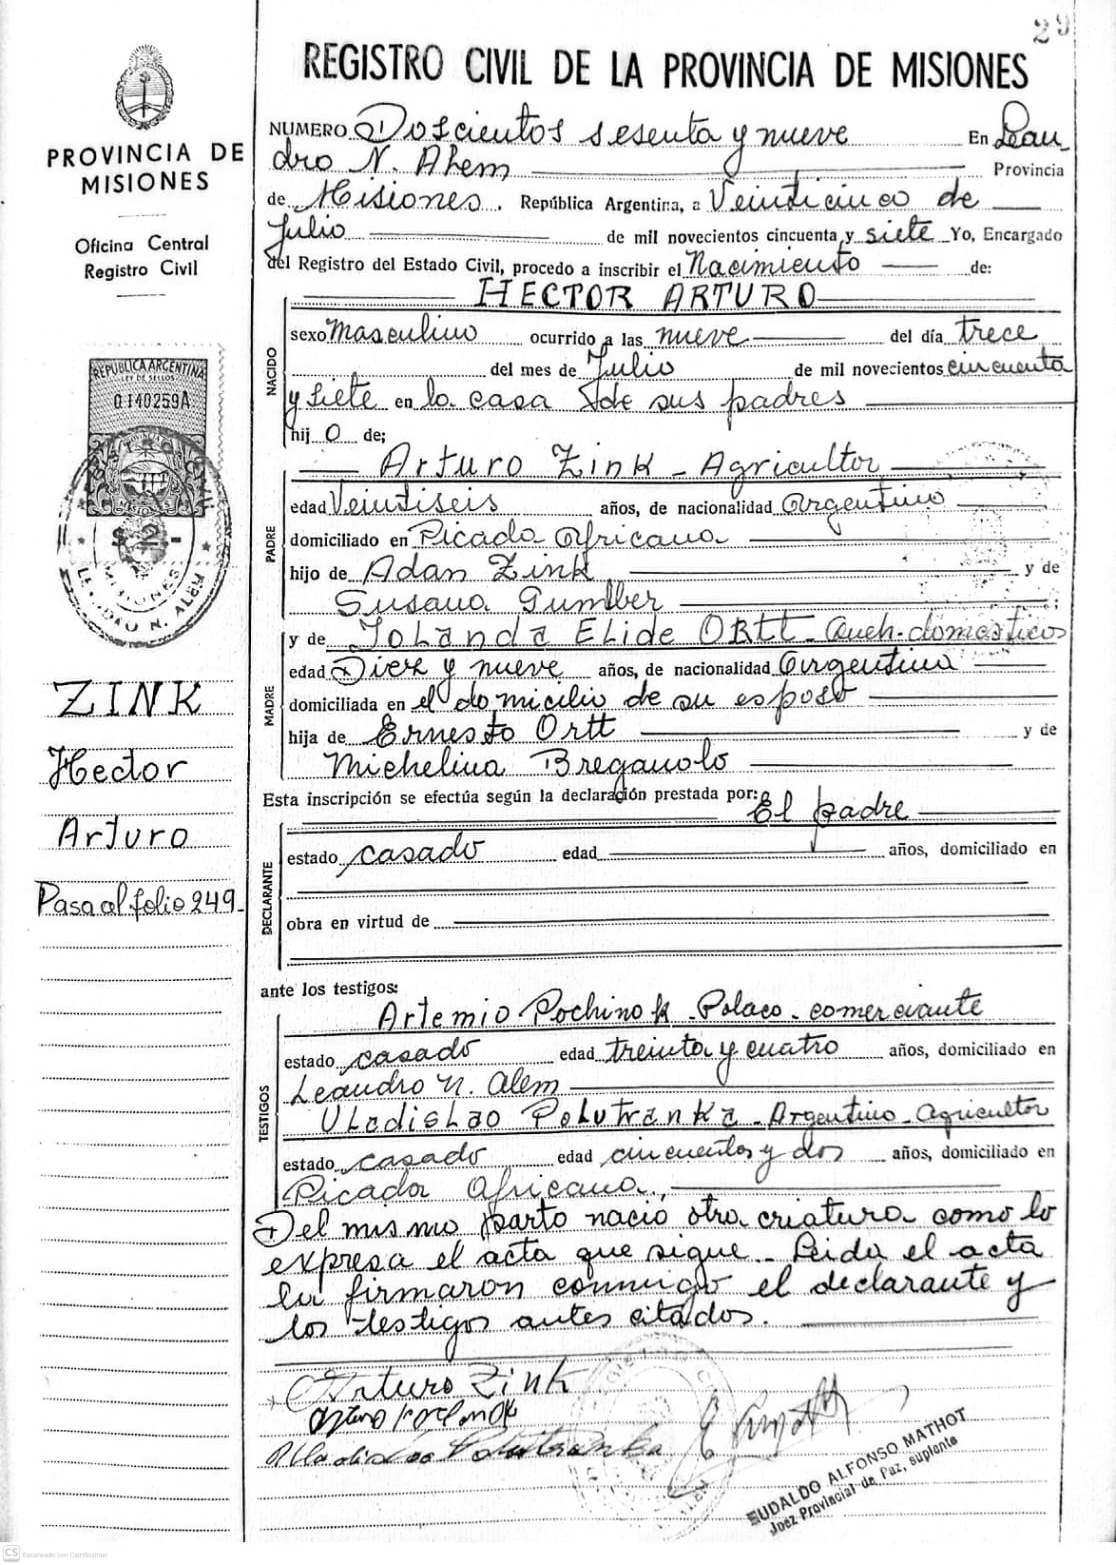 29
REGISTRO CIVIL DE LA PROVINCIA DE MISIONES
PROVINCIA DE
MISIONES
Oficina Central
Registro Civil
REPUBLICA ARGENTINA
LEY DE SELLOS
0140259A
MISIONES
$ 2.-
LEANDRO N. ALEM
ZINK
Hector
Arturo
Pasa al folio 249.
NUMERO Doscientos sesenta y nueve En Lean-
dro N. Alem Provincia
de Misiones. República Argentina, a Veinticinco de
Julio de mil novecientos cincuenta y siete Yo, Encargado
del Registro del Estado Civil, procedo a inscribir el Nacimiento de:
HECTOR ARTURO
NACIDO
sexo Masculino ocurrido a las nueve del día trece
del mes de Julio de mil novecientos cincuenta
y siete en la casa de sus padres
hijo de;
PADRE
Arturo Zink - Agricultor
edad Veintiseis años, de nacionalidad Argentino
domiciliado en Picada Africana
hijo de Adan Zink y de
Susana Gumber
MADRE
y de Iolanda Elide Ortt - Queh-domesticos
edad Diez y nueve años, de nacionalidad Argentina
domiciliada en el domicilio de su esposo
hija de Ernesto Ortt y de
Michelina Breganolo
Esta inscripción se efectúa según la declaración prestada por: El padre
DECLARANTE
estado casado edad años, domiciliado en
obra en virtud de
ante los testigos:
TESTIGOS
Artemio Pochinok - Polaco - comerciante
estado casado edad treinta y cuatro años, domiciliado en
Leandro N. Alem
Uladislao Polutranka - Argentino - agricultor
estado casado edad cincuenta y dos años, domiciliado en
Picada Africana,
Del mismo parto nació otra criatura como lo
expresa el acta que sigue. Leida el acta
la firmaron conmigo el declarante y
los testigos antes citados.
Arturo Zink
Uladislao Polutranka
EUDALDO ALFONSO MATHOT
Juez Provincial de Paz, suplente
CS Escaneado con CamScanner